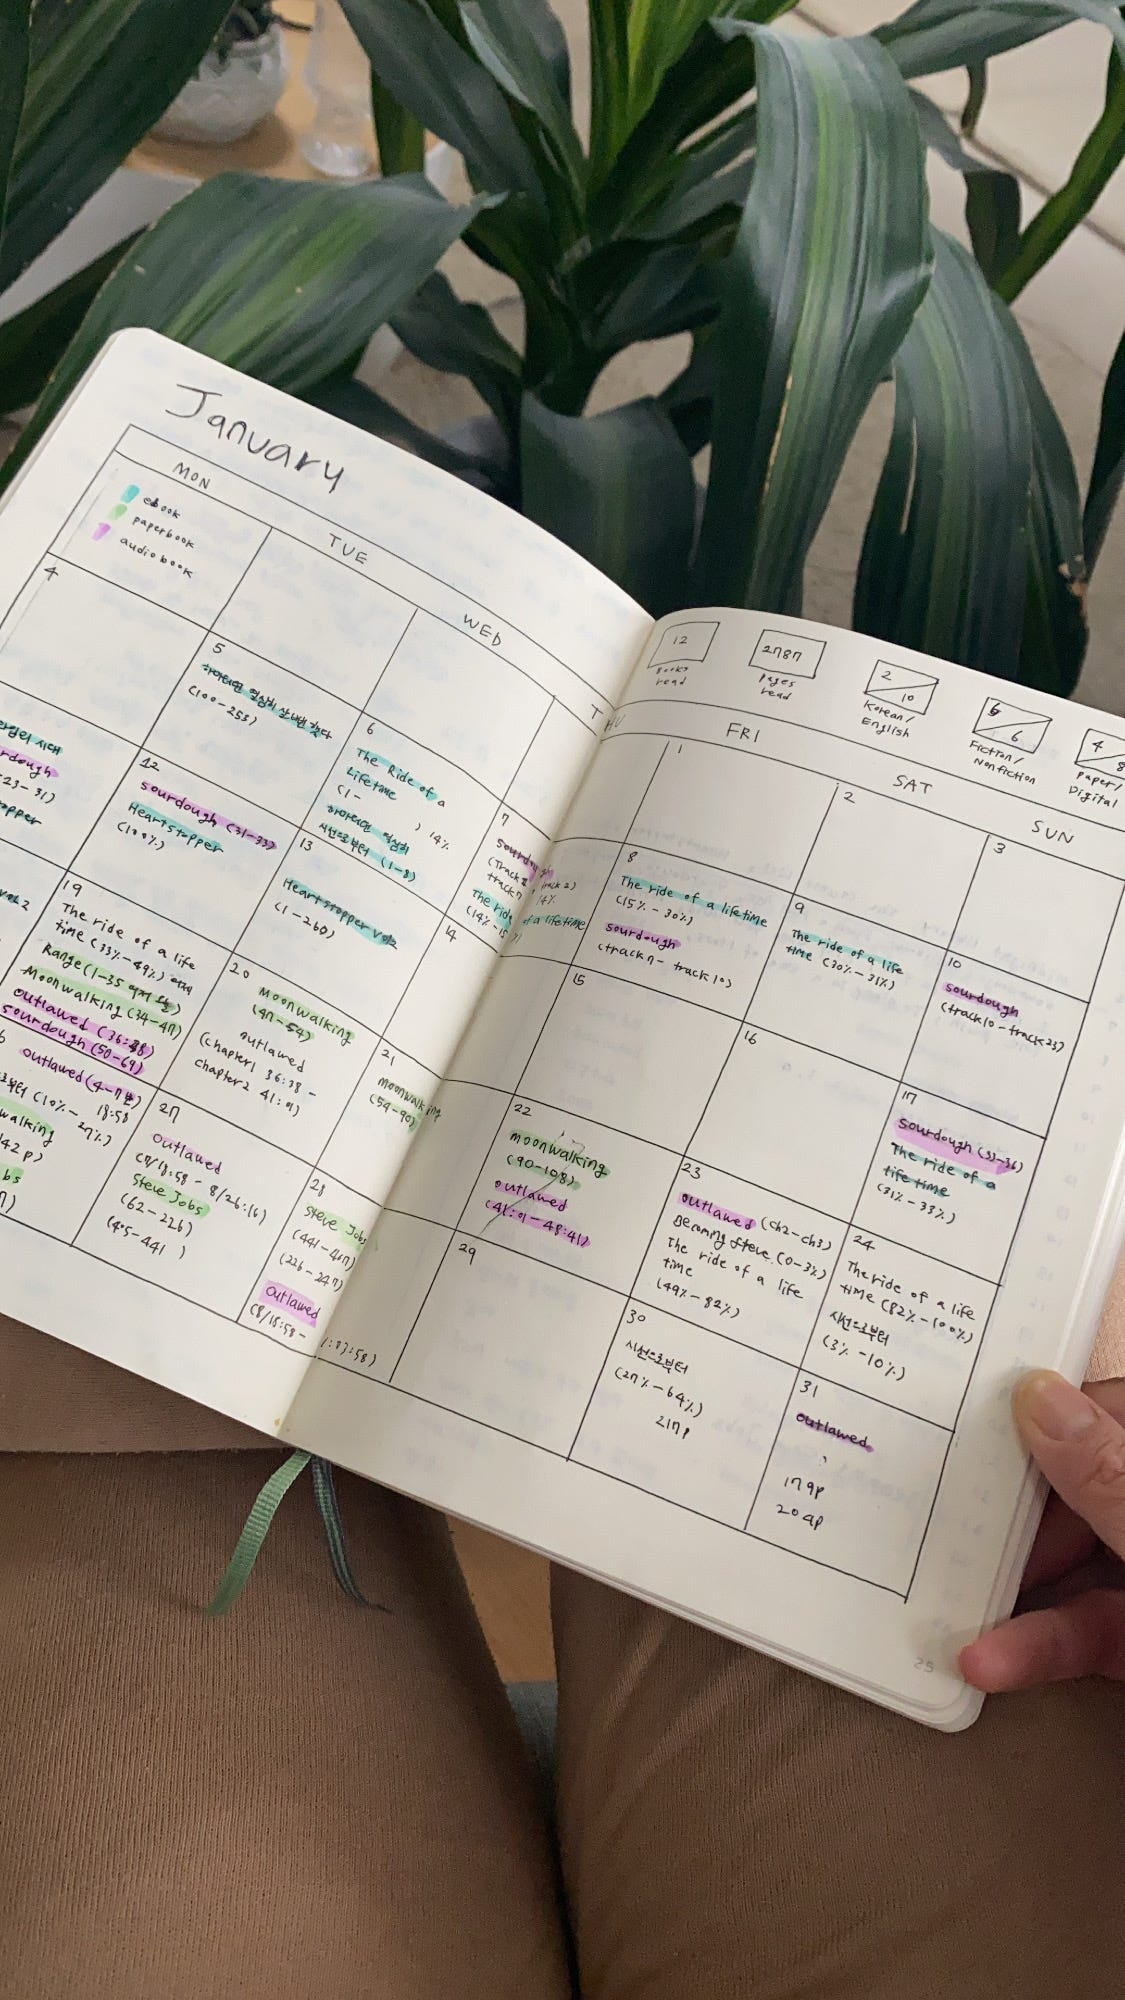 January
MON
TUE
WED
THU
ebook
paperbook
audiobook
4
5
(100-253)
6
The Ride of a
Lifetime
(1-
) 14%
하마터면 열심히
시선으로부터 (1-8)
7
sourdough
(Track 2)
The ride of a lifetime
(14%-15
(23-31)
12
sourdough (31-33)
Heartstopper
(100%)
13
Heartstopper vol2
(1-260)
14
vol 2
19
The ride of a life
time (33%-49%)
Range (1-35
Moonwalking (34-47)
outlawed (36:38)
sourdough (50-69)
20
Moonwalking
(47-54)
outlawed
(chapter1 36:38-
chapter2 41:01)
21
moonwalking
(54-90)
outlawed (4-7
18:58
(10%-
27%)
walking
142p)
27
outlawed
(7/18:58 - 8/26:16)
Steve Jobs
(62-226)
(405-441 )
28
Steve Jobs
(441-467)
(226-247)
outlawed
(8/18:58-
1:03:58)
12
Books
read
2787
Pages
read
2
10
Korean/
English
6
6
Fiction/
Nonfiction
4
8
Paper/
Digital
FRI
SAT
SUN
1
2
3
8
The ride of a lifetime
(15%-30%)
sourdough
(track7- track10)
9
The ride of a life
time (30%-31%)
10
sourdough
(track10-track23)
15
16
17
sourdough (33-36)
The ride of a
life time
(31%-33%)
22
moonwalking
(90-108)
outlawed
(41:01-48:41)
23
outlawed (ch2-ch3)
Becoming Steve (0-3%)
The ride of a life
time
(49%-82%)
24
The ride of a life
time (82%-100%)
시선으로부터
(3%-10%)
29
30
시선으로부터
(27%-64%)
217p
31
outlawed
179p
204p
25